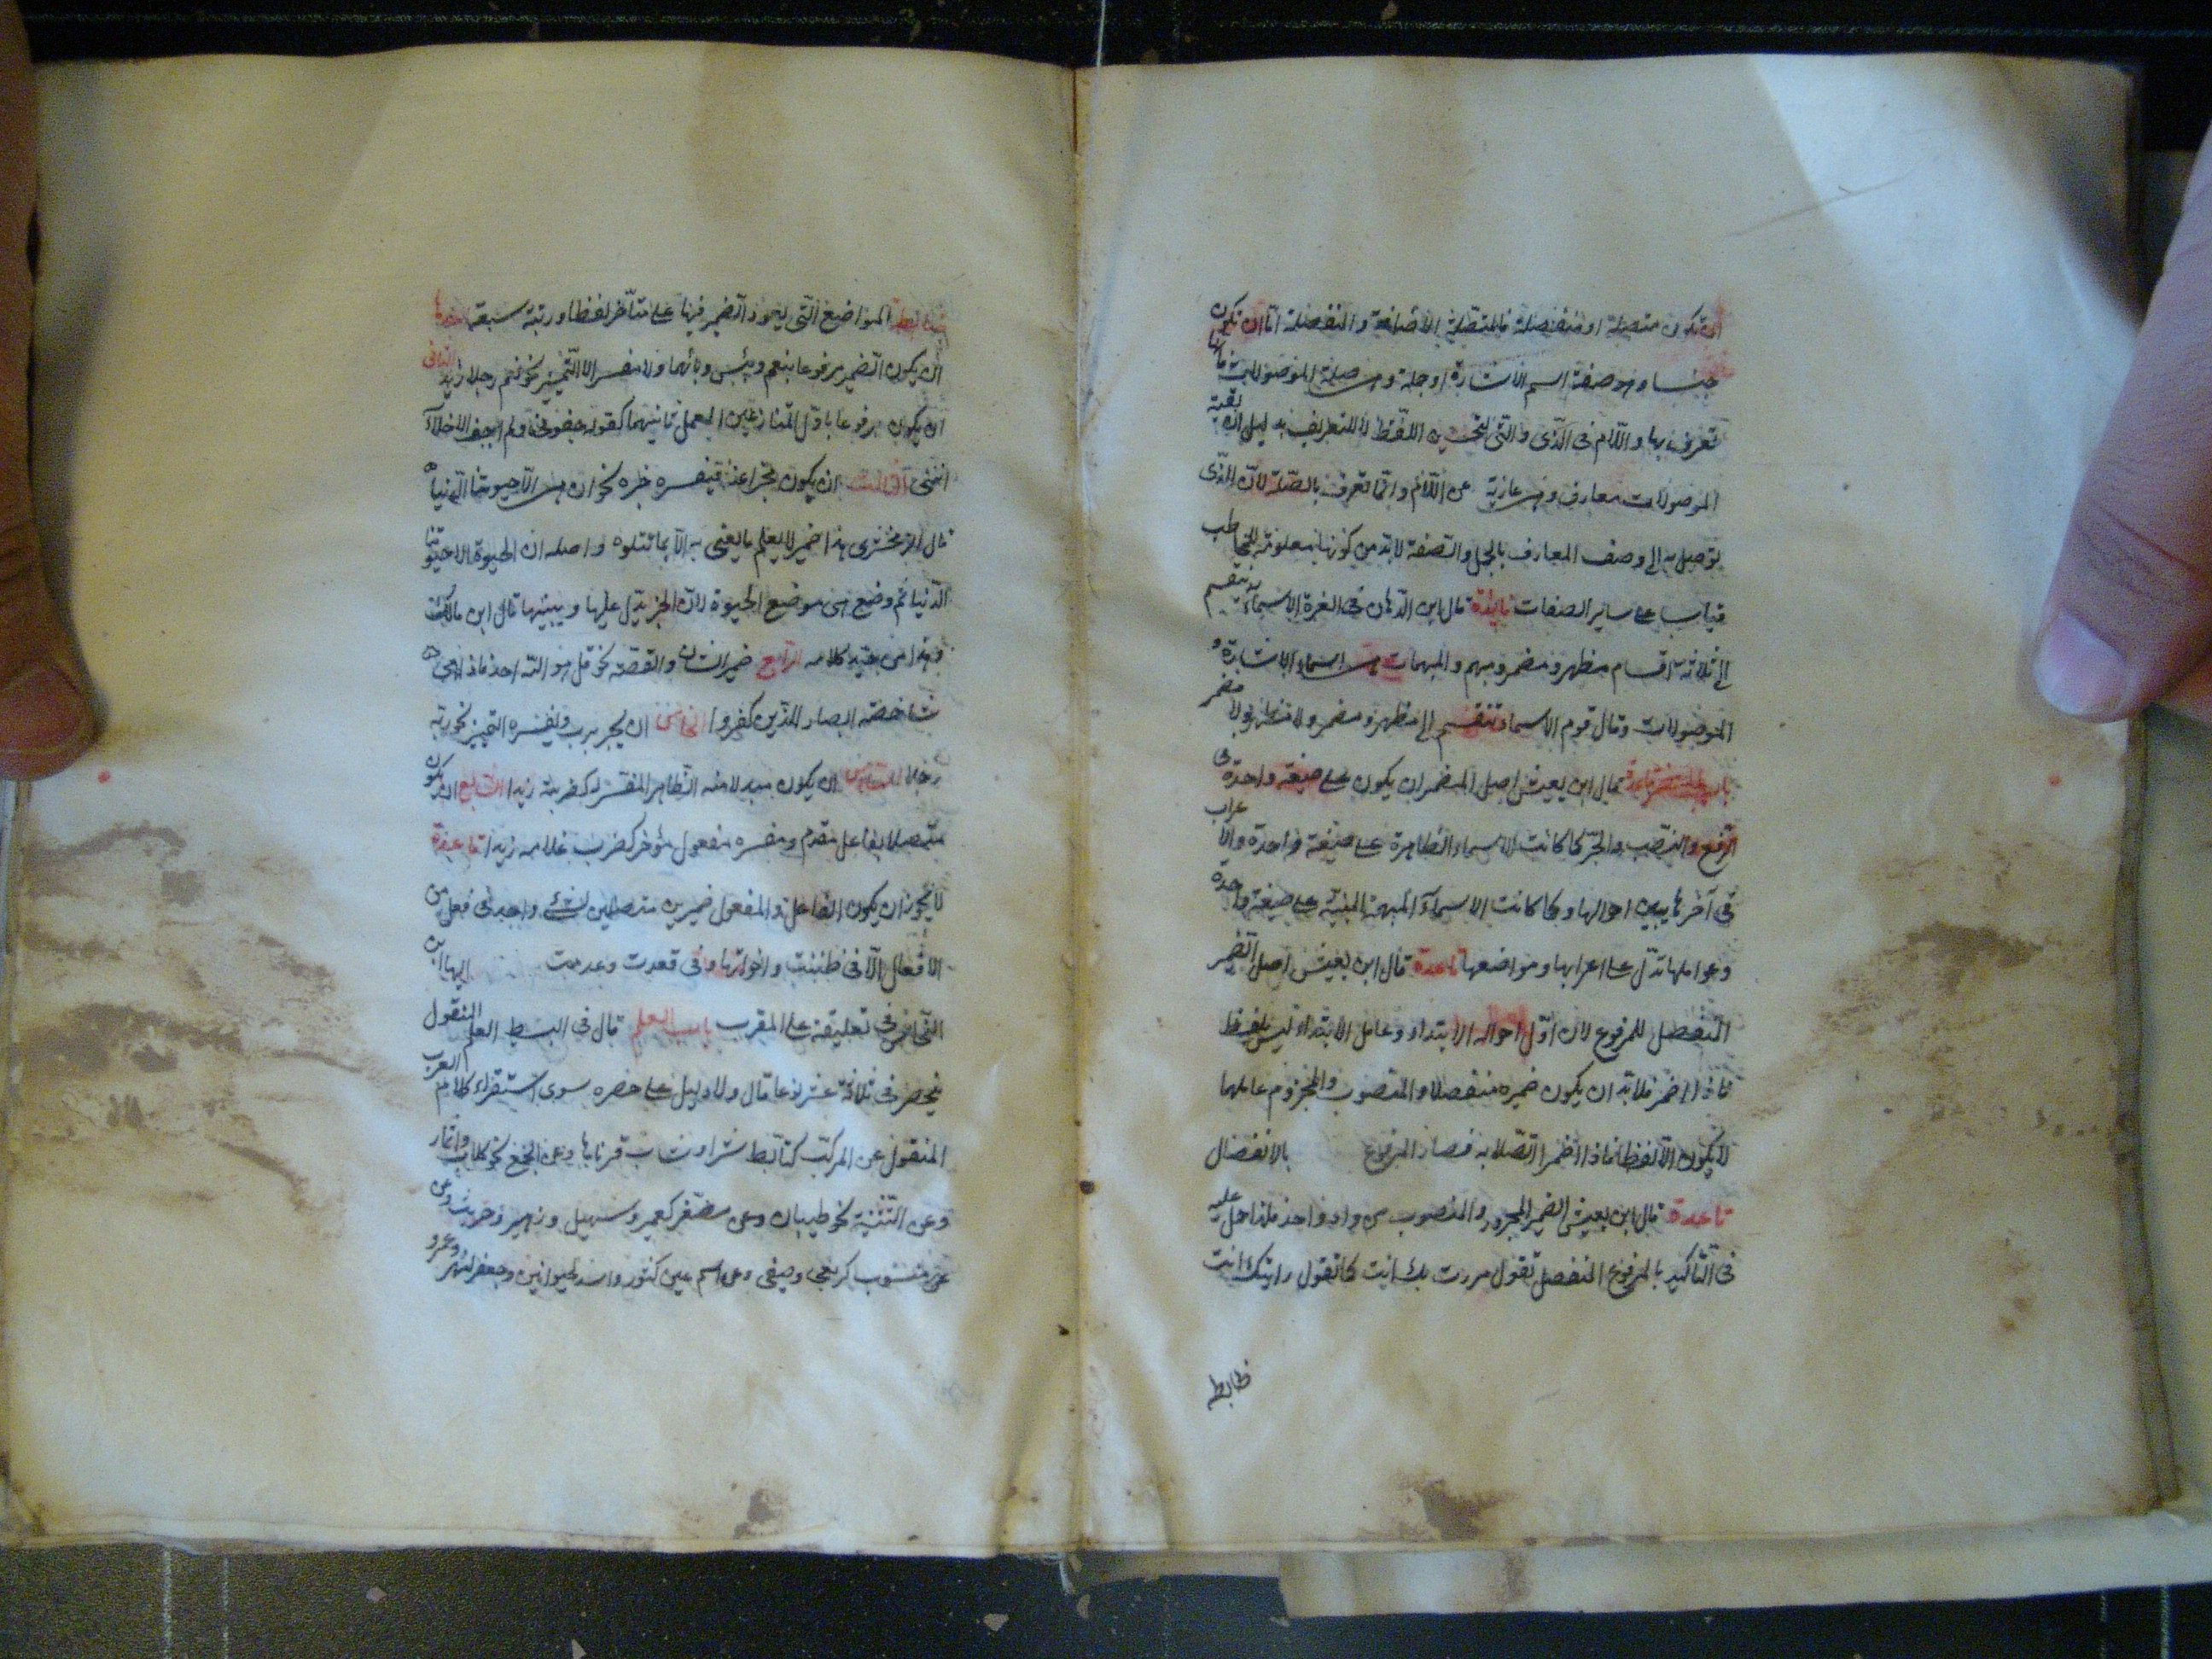 ان تكون متصلة او منفصلة فالمتصلة الاضافة والمنفصلة اما ان تكون
جنسا وهو صفة اسم الاشارة او جملة وهي صلة الموصول التي
تعرف بها واللام في الذي والتي لتحسين اللفظ لا للتعريف بدليل ان بقية
الموصولات معارف وهي عارية عن اللام وانما تعرف بالصلة لان الذي
توصل به الى وصف المعارف بالجمل والصفة لا بد من كونها معلومة للمخاطب
قياسا على ساير الصفات فائدة قال ابن الدهان في الغرة الاسماء تنقسم
الى ثلاثة اقسام مظهر ومضمر ومبهم والمبهمات هي اسماء الاشارة و
الموصولات وقال قوم الاسماء تنقسم الى مظهر ومضمر ولا مظهر ولا مضمر
باب المضمر قاعدة قال ابن يعيش اصل المضمر ان يكون على صيغة واحدة في
الرفع والنصب والجر كما كانت الاسماء الظاهرة على صيغة واحدة والاعراب
في آخرها يبين احوالها وكما كانت الاسماء المبهمة المبنية على صيغة واحدة
وعواملها تدل على اعرابها ومواضعها قاعدة قال ابن يعيش اصل الضمير
المنفصل للمرفوع لان اول احواله الابتداء وعامل الابتداء ليس بلفظ
فاذا اضمر فلا بد ان يكون ضميره منفصلا والمنصوب والمجزوم عاملها
لا يكون الا لفظا فاذا اضمرا اتصلا به فصار المرفوع بالانفصال
قاعدة قال ابن يعيش الضمير المجرور والمنصوب من واد واحد فلذا حمل عليه
في التاكيد بالمرفوع المنفصل تقول مررت بك انت كما تقول رايتك انت
ظابطه
ضابطة المواضع التي يعود الضمير فيها على متأخر لفظا ورتبة سبعة احدها
ان يكون الضمير مرفوعا بنعم وبئس وبابهما ولا مفسر الا التمييز نحو نعم رجلا زيد الثاني
ان يكون مرفوعا باول المتنازعين المعمل ثانيهما كقوله جفوني ولم اجف الاخلاء
انني الثالث ان يكون مخبرا عنه فيفسره خبره نحو ان هي الا حيوتنا الدنيا
قال الزمخشري هذا ضمير لا يعلم ما يعنى به الا بما يتلوه واصله ان الحيوة الا حيوتنا
الدنيا ثم وضع هي موضع الحيوة لان الخبر يدل عليها ويبينها قال ابن مالك
وهذا من جيد كلامه الرابع ضمير الشان والقصة نحو قل هو الله احد فاذا هي
شاخصة ابصار الذين كفروا الخامس ان يجر برب ويفسره التمييز نحو ربه
رجلا السادس ان يكون مبدلا منه الظاهر المفسر له كضربته زيدا السابع ان يكون
متصلا بفاعل مقدم ومفسره مفعول مؤخر كضرب غلامه زيدا قاعدة
لا يجوز ان يكون الفاعل والمفعول ضميرين متصلين لشيء واحد في فعل من
الافعال الا في ظننت واخواتها وفي فقدت وعدمت البها ابن
النحاس في تعليقه على المقرب باب العلم قال في البسيط العلم المنقول
ينحصر في ثلاثة عشر نوعا قال ولا دليل على حصره سوى استقراء كلام العرب
المنقول عن المركب كتابط شرا وشاب قرناها وعن الجمع نحو كلاب وانمار
وعن التثنية نحو طيبان وعن مصغر كعمير وسهيل وزهير وحريث وعن
منسوب كربعي وصيفي وعن اسم عين كثور واسد لحيوانين وجعفر لنهر وعمرو